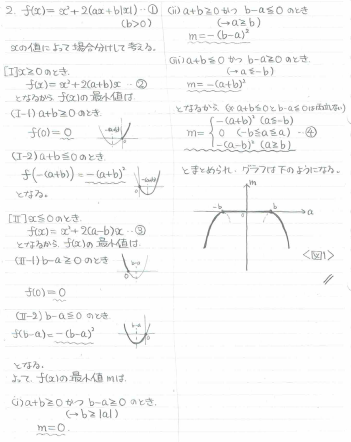 2. f(x) = x²+2(ax+b|x|) …①
(b>0)
xの値によって場合分けして考える。
[I] x≧0のとき.
f(x) = x²+2(a+b)x …②
となるから f(x)の最小値は
(I-1) a+b≧0のとき
f(0) = 0
-(a+b)
(I-2) a+b≦0のとき
f(-(a+b)) = -(a+b)²
-(a+b)
となる。
[II] x≦0のとき.
f(x) = x²+2(a-b)x …③
となるから. f(x)の最小値は.
(II-1) b-a≧0のとき
b-a
f(0) = 0
(II-2) b-a≦0のとき.
f(b-a) = -(b-a)²
b-a
となる。
よって. f(x)の最小値mは.
(i) a+b≧0かつ b-a≧0のとき.
(→ b≧|a|)
m=0.
(ii) a+b≧0かつ b-a≦0のとき
(→a≧b)
m=-(b-a)²
(iii) a+b≦0かつ b-a≧0のとき.
(→a≦-b)
m=-(a+b)²
となるから. (※ a+b≦0とb-a≦0は
m= { -(a+b)² (a≦-b)
0 (-b≦a≦b) …④
-(a-b)² (a≧b)
とまとめられ. グラフは下のようになる。
m
-b
b
a
<図1>